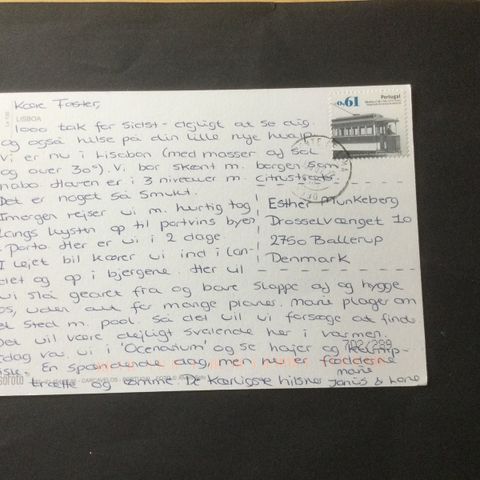 LISBOA
Kære Faster,
1000 tak for sidst - dejligt at se dig
og også hilse på din lille nye hvalp
Vi er nu i Lissabon (med masser af sol
og over 30°). Vi bor skønt m. borgen som
nabo. Haven er i 3 niveauer m. citrustræer.
Det er noget så smukt.
Imorgen rejser vi m. hurtig tog
langs kysten op til portvins byen
Porto. Her er vi i 2 dage.
I lejet bil kører vi ind i lan-
det og op i bjergene. Her vil
vi slå gearet fra og bare slappe af og hygge
os, uden alt for mange planer. Marie plager om
et sted m. pool. Så det vil vi forsøge at finde
Det vil være dejligt svalende her i varmen.
Idag var vi i 'Ocenarium' og se hajer og kæmpe-
fisk. En spændende dag, men nu er fødderne
trætte og ømme. De kærligste hilsner
Marie
Janus & Lone
Esther Munkeberg
Drosselvænget 10
2750 Ballerup
Denmark
€0,61
Portugal
702/299